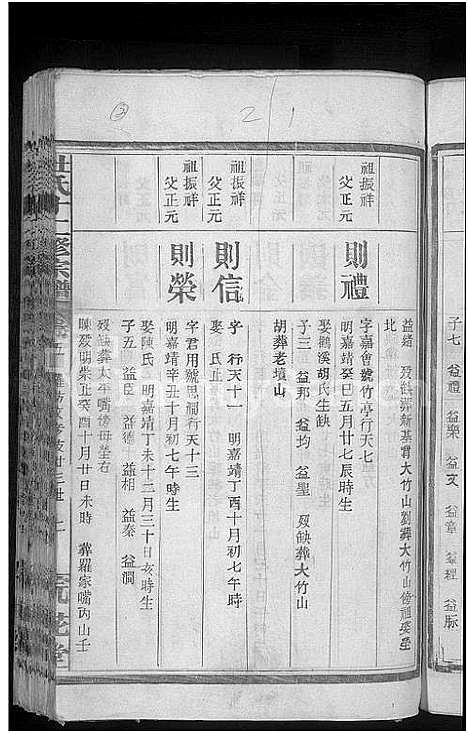 子七 益禮 益樂 益文 益章 益經 益脈
益緒 歿缺葬新基背大竹山劉葬大竹山傍祖婆塋
北
祖振祥
父正元
則禮
字嘉會號竹亭行天七
明嘉靖癸巳五月廿七辰時生
娶鸛溪胡氏生缺
子三 益邦 益均 益聖 歿缺葬大竹山
胡葬老墳山
祖振祥
父正元
則信
字 行天十一 明嘉靖丁酉十月初七午時
娶 氏止
祖振祥
父正元
則榮
字君用號思澗行天十三
明嘉靖辛丑十月初七午時生
娶陳氏 明嘉靖丁未十二月三十日亥時生
子五 益臣 益德 益相 益秦 益澗
歿缺葬太平嘴傍母塋右
陳歿明崇正癸酉十月廿日未時 葬羅家嘴丙山壬
氏十二修宗譜
世 七
花堂
② 2 1